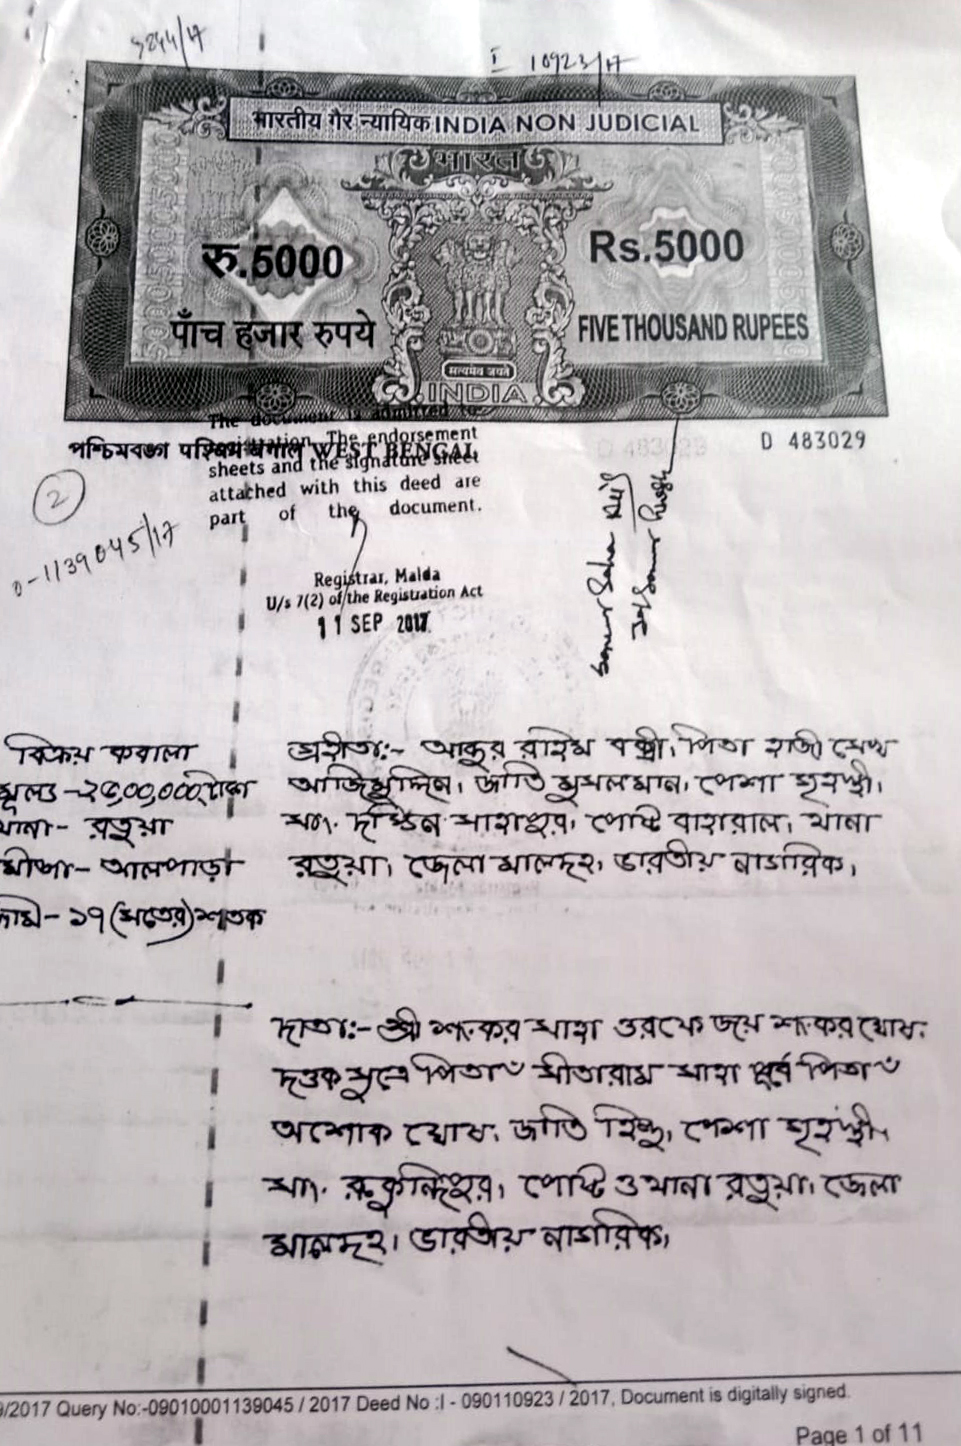 5244/17
I 10923/17
भारतीय गैर न्यायिक INDIA NON JUDICIAL
भारत
रु.5000
Rs.5000
पाँच हजार रुपये
FIVE THOUSAND RUPEES
सत्यमेव जयते
INDIA
The document is admitted to
registration. The endorsement
পশ্চিমবঙ্গ पश्चिम बंगाल WEST BENGAL
D 483029
sheets and the signature sheet
attached with this deed are
part of the document.
2
0-1139045/17
Registrar, Malda
U/s 7(2) of the Registration Act
11 SEP 2017
বিক্রয় কবালা
মূল্য -২৫,০০,০০০ টাকা
থানা- রতুয়া
মৌজা- আলপাড়া
জমি- ১৭ (সতের) শতক
গ্রহীতা:- আব্দুর রহিম বক্সী। পিতা হাজী সেখ
আজিমুদ্দিন। জাতি মুসলমান। পেশা গৃহস্থী।
সাং দক্ষিন সাহাপুর। পোষ্ট বাহারাল। থানা
রতুয়া। জেলা মালদহ। ভারতীয় নাগরিক।
দাতা:- শ্রী শংকর সাহা ওরফে জয় শংকর ঘোষ।
দত্তক সূত্রে পিতা ৺ সীতারাম সাহা পূর্ব পিতা ৺
অশোক ঘোষ। জাতি হিন্দু। পেশা গৃহস্থী।
সাং রুকুন্দিপুর। পোষ্ট ও থানা রতুয়া। জেলা
মালদহ। ভারতীয় নাগরিক।
9/2017 Query No:-09010001139045 / 2017 Deed No :I - 090110923 / 2017, Document is digitally signed.
Page 1 of 11